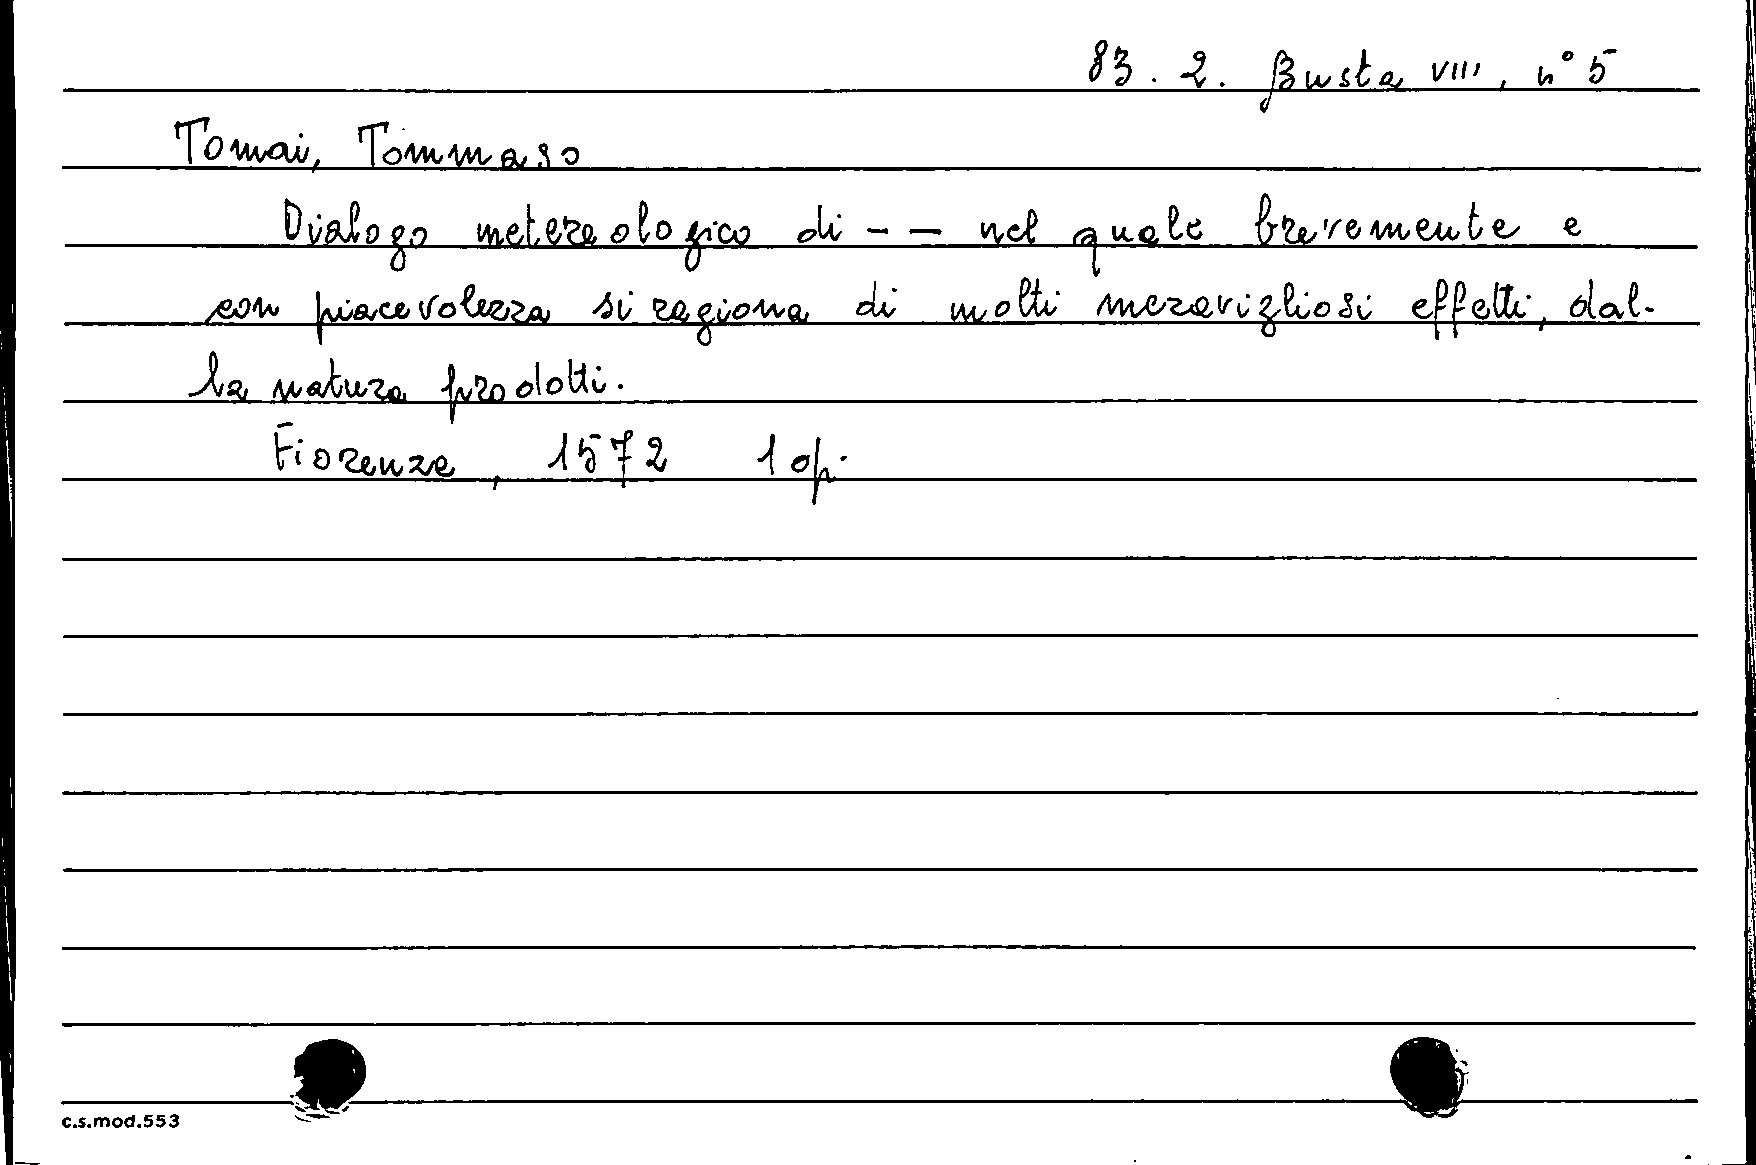 83. 2. Busta VIII, n° 5
Tomai, Tommaso
Dialogo metereologico di - - nel quale brevemente e
con piacevolezza si ragiona di molti meravigliosi effetti, dal-
la natura prodotti.
Fiorenza, 1572 1 op.
c.s.mod.553